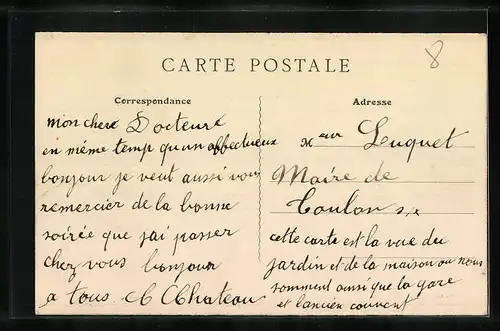 8
CARTE POSTALE
Correspondance
mon cher Docteur
en même temp qu'un affectueux
bonjour je veut aussi vous
remercier de la bonne
soirée que jai passer
chez vous bonjour
a tous. Chateau
Adresse
Luquet
Maire de
Toulon s/x
cette carte est la vue du
jardin et de la maison ou nous
somment ainsi que la gare
et lancien couvent